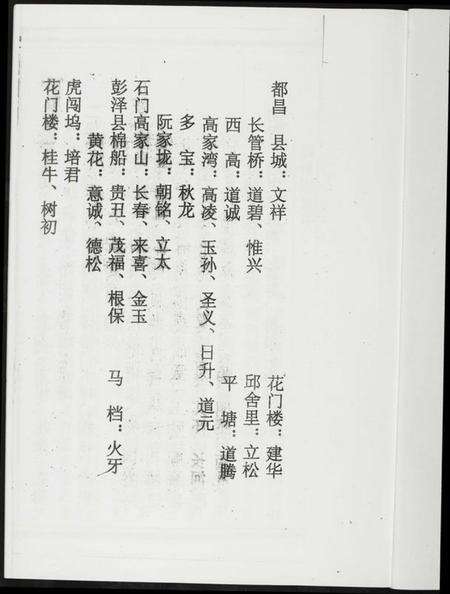 都昌　县城：文祥　花门楼：建华
长管桥：道碧、惟兴　邱舍里：立松
西　高：道诚　平　塘：道腾
高家湾：高凌、玉孙、圣义、日升、道元
多　宝：秋龙
阮家垅：朝铭、立太
石门高家山：长春、来喜、金玉
彭泽县棉船：贵丑、茂福、根保　马　档：火牙
黄花：意诚、德松
虎闯坞：培君
花门楼：桂牛、树初